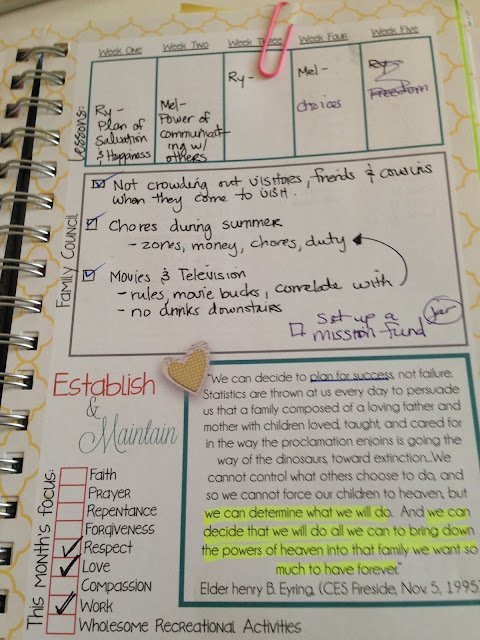 Week One Week Two Week Three Week Four Week Five
Lessons:
Ry -
Plan of
Salvation
& Happiness
Mel -
Power of
communicat-
ing w/
others
Ry -
Mel -
Choices
Ry -
Freedom
Family Council
Not crowding out visitors, friends & cousins
when they come to visit.
Chores during summer
- zones, money, chores, duty
Movies & Television
- rules, movie bucks, correlate with
- no drinks downstairs
Set up a
mission fund
Establish
&
Maintain
This month's focus:
Faith
Prayer
Repentance
Forgiveness
Respect
Love
Compassion
Work
Wholesome Recreational Activities
"We can decide to plan for success, not failure.
Statistics are thrown at us every day to persuade
us that a family composed of a loving father and
mother with children loved, taught, and cared for
in the way the proclamation enjoins is going the
way of the dinosaurs, toward extinction...We
cannot control what others choose to do, and
so we cannot force our children to heaven, but
we can determine what we will do. And we can
decide that we will do all we can to bring down
the powers of heaven into that family we want so
much to have forever."
Elder henry B. Eyring, (CES Fireside, Nov. 5, 1995)